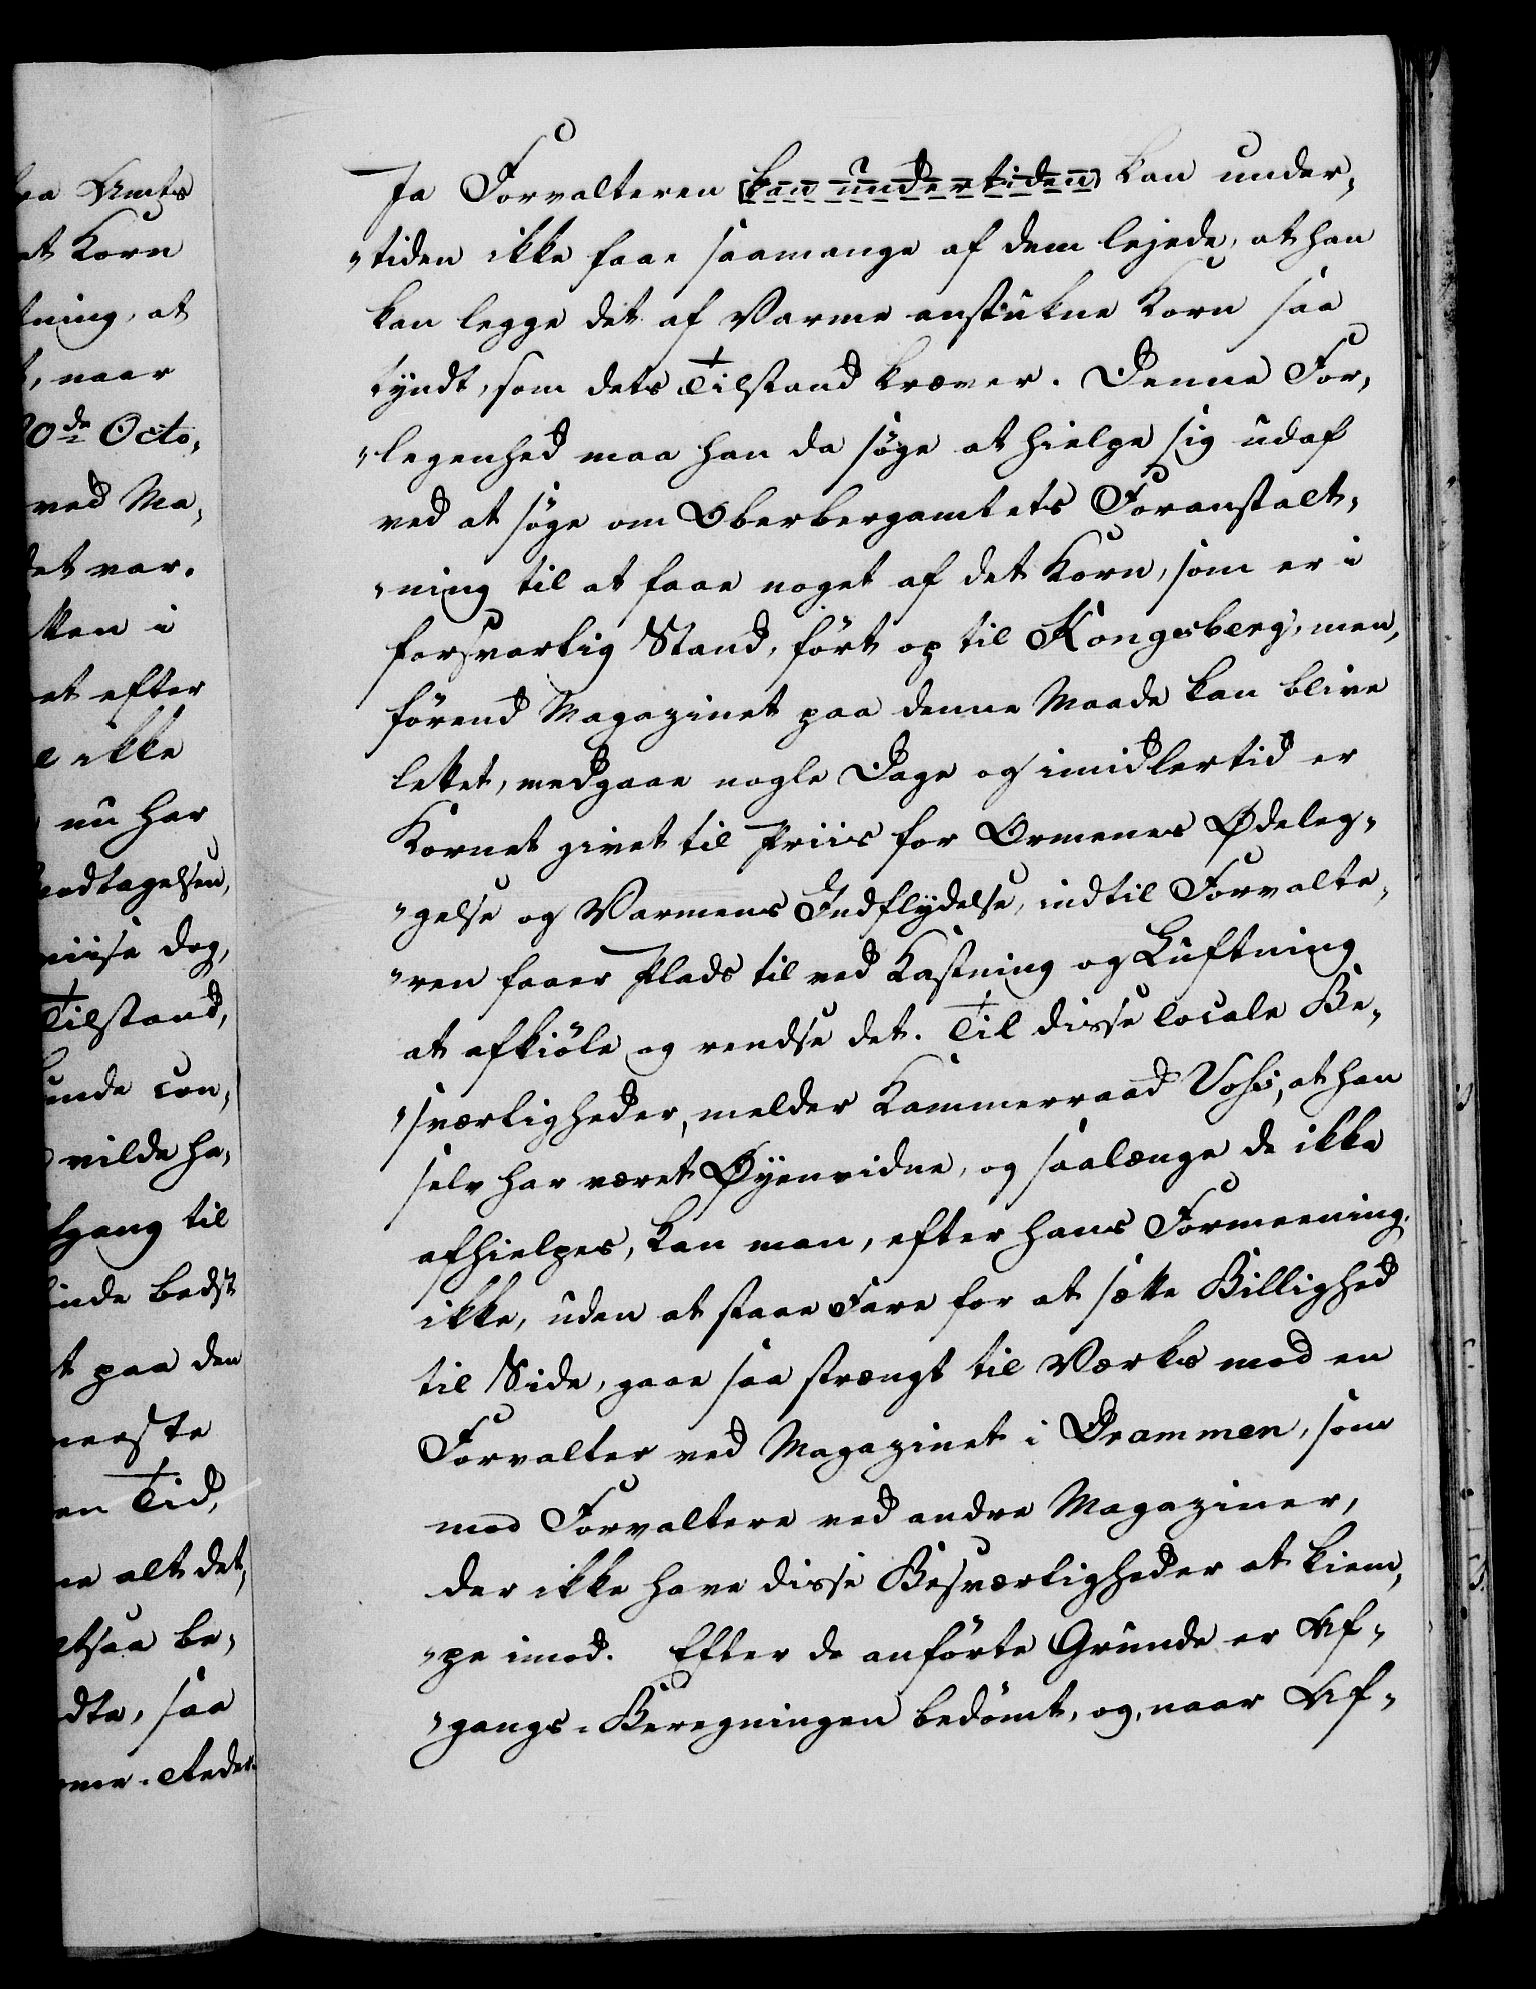 ra Amts
et Korn
tning, at
t, naar
20de Octo,
ved Ma,
det var.
kken i
et efter
e ikke
nu har
modtagelsen,
viise dog,
Tilstand,
unde con,
vilde ha,
fgang til
inde bedst
t paa den
neeste
en Tid,
ne alt det,
altsaa be,
dte, saa
Ja Forvalteren kan undertiden kan under,
"tiden ikke faae saamange af dem lejede, at han
kan legge det af Varme anstukne Korn saa
tyndt, som dets Tilstand kræver. Denne For,
"legenhed maa han da søge at hielpe sig udaf
ved at søge om Oberbergamtets Foranstalt,
"ning til at faae noget af det Korn, som er i
forsvarlig Stand, ført op til Kongsberg, men,
førend Magazinet paa denne Maade kan blive
lettet, medgaae nogle Dage og imidlertid er
Kornet givet til Priis for Ormenes Ødeleg„
"gelse og Varmens Indflydelse, indtil Forvalte„
"ren faaer Plads til ved Kastning og Luftning
at afkiöle og rendse det. Til disse locale Be„
"sværligheder, melder Kammerraad Vohs, at han
selv har været Øyenvidne, og saalænge de ikke
afhielpes, kan man, efter hans Formeening,
ikke, uden at staae Fare for at sætte Billighed
til Side, gaae saa strængt til Værks mod en
Forvalter ved Magazinet i Drammen, som
mod Forvaltere ved andre Magaziner,
der ikke have disse Besværligheder at kiem„
"pe imod. Efter de anførte Grunde er Af„
"gangs-Beregningen bedømt, og, naar Af„